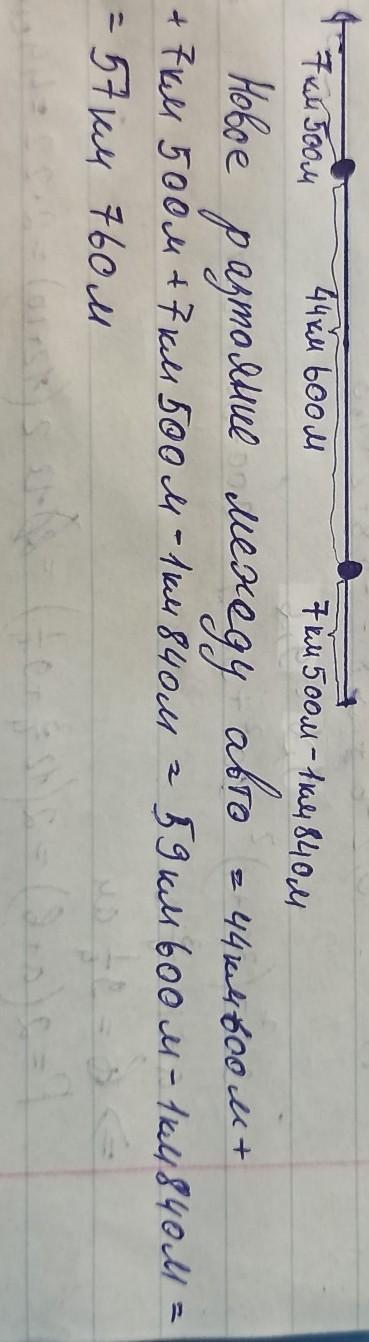 7км 500м 44км 600м 7км 500м - 1км 840м
Новое растояние между авто = 44км 600м +
+ 7км 500м + 7км 500м - 1км 840м = 59км 600м - 1км 840м =
= 57км 760м